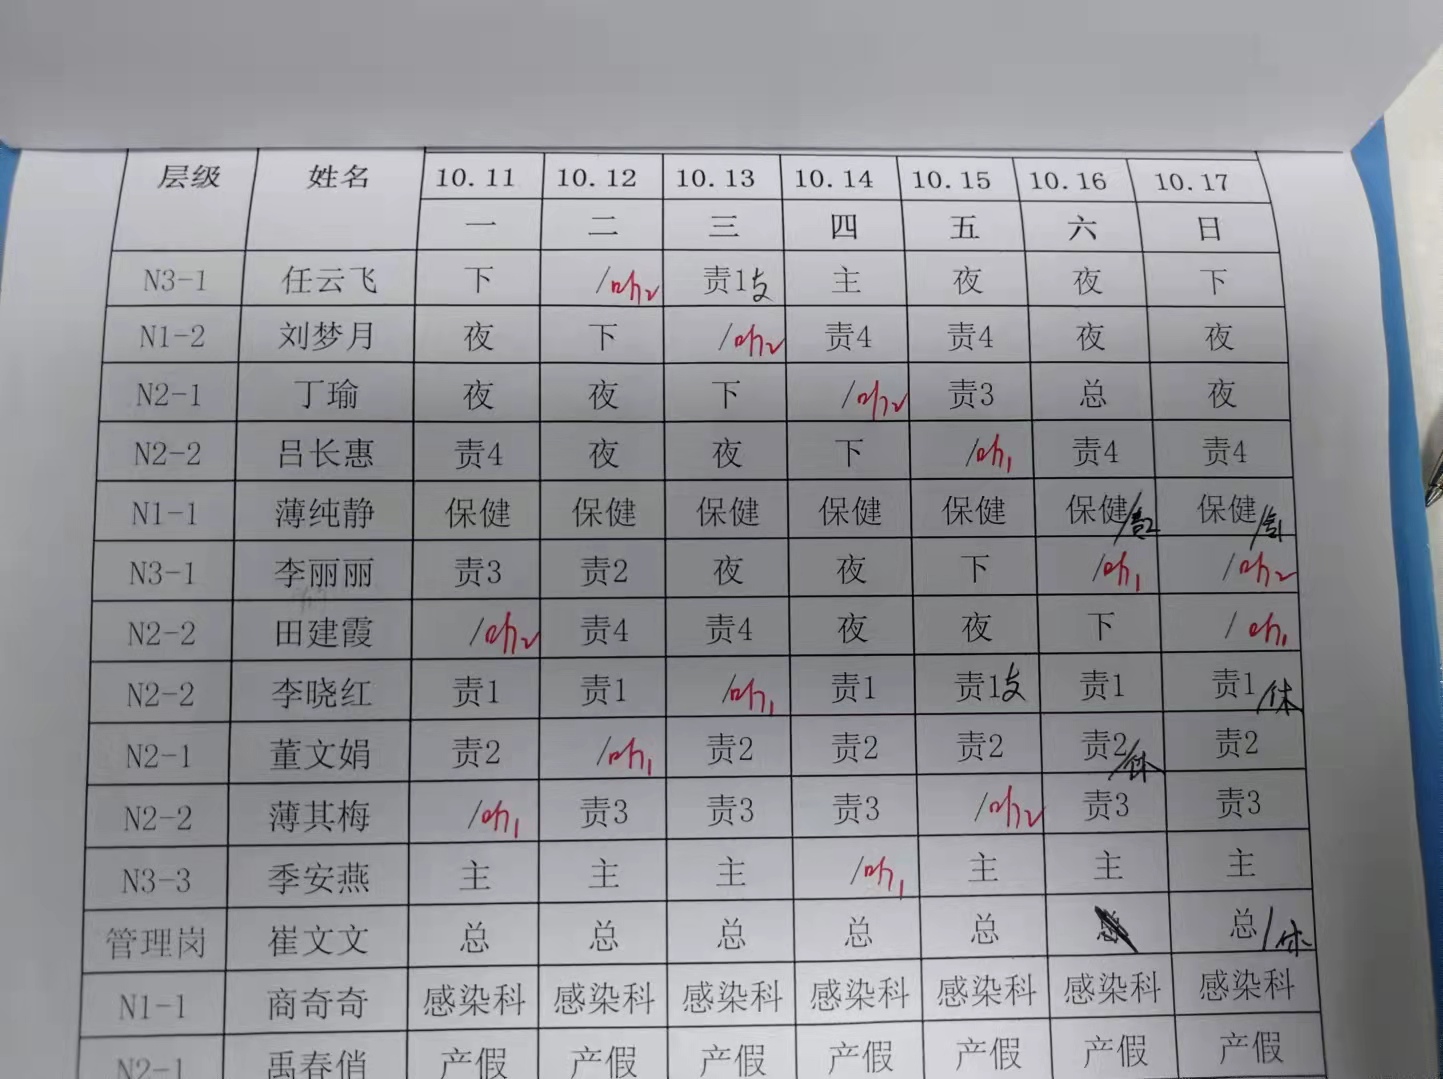 层级 姓名 10.11 10.12 10.13 10.14 10.15 10.16 10.17
一 二 三 四 五 六 日
N3-1 任云飞 下 / 责1支 主 夜 夜 下
N1-2 刘梦月 夜 下 / 责4 责4 夜 夜
N2-1 丁瑜 夜 夜 下 / 责3 总 夜
N2-2 吕长惠 责4 夜 夜 下 / 责4 责4
N1-1 薄纯静 保健 保健 保健 保健 保健 保健/责2 保健/责1
N3-1 李丽丽 责3 责2 夜 夜 下 / /
N2-2 田建霞 / 责4 责4 夜 夜 下 /
N2-2 李晓红 责1 责1 / 责1 责1支 责1 责1/休
N2-1 董文娟 责2 / 责2 责2 责2 责2/休 责2
N2-2 薄其梅 / 责3 责3 责3 / 责3 责3
N3-3 季安燕 主 主 主 / 主 主 主
管理岗 崔文文 总 总 总 总 总 总 总/休
N1-1 商奇奇 感染科 感染科 感染科 感染科 感染科 感染科 感染科
N2-1 禹春俏 产假 产假 产假 产假 产假 产假 产假